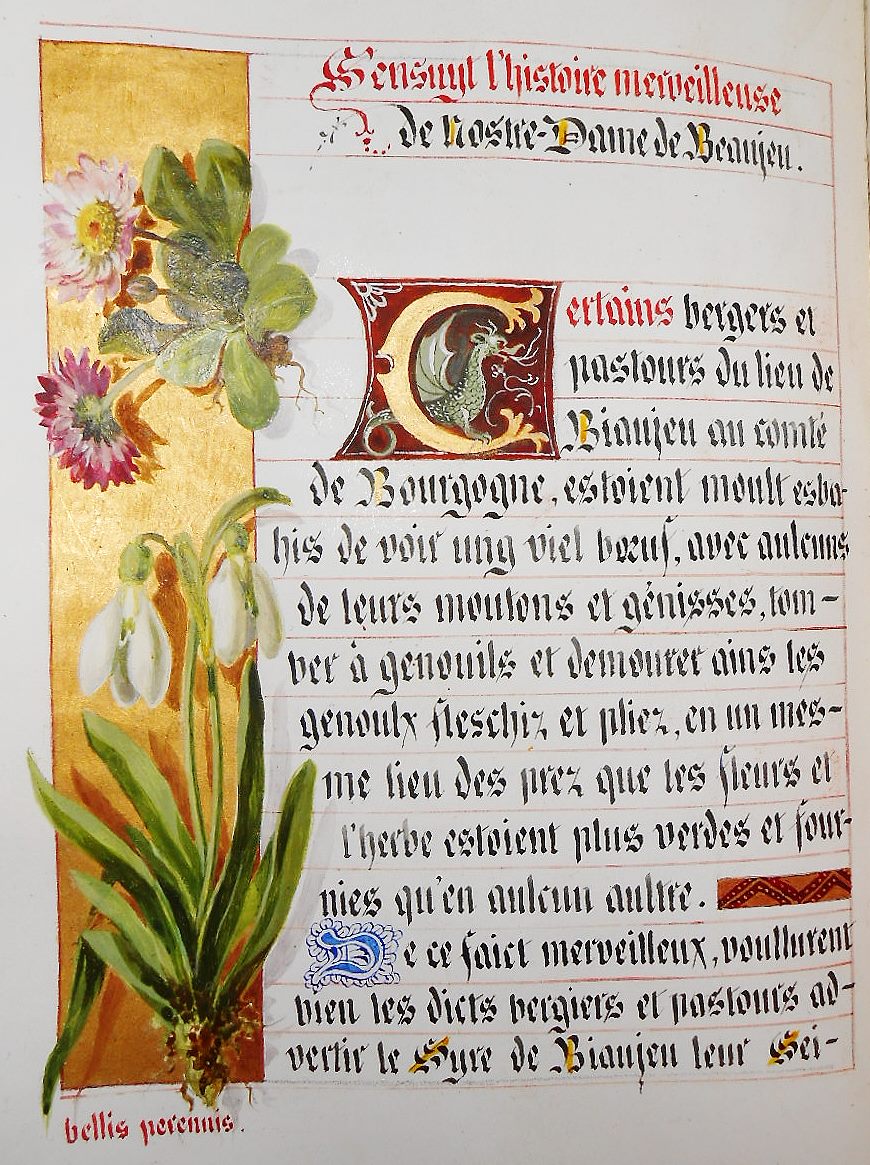 Sensuyt l'histoire merveilleuse
de Nostre-Dame de Beaujeu.
Certains bergers et
pastours du lieu de
Biaujeu au comté
de Bourgogne, estoient moult esba-
his de voir ung viel bœuf, avec aulcuns
de leurs moutons et génisses, tom-
ber à genouils et demourer ains les
genoulx fleschiz et pliez, en un mes-
me lieu des prez que les fleurs et
l'herbe estoient plus verdes et four-
nies qu'en aulcun aultre.
De ce faict merveilleux, voullurent
bien les dicts bergiers et pastours ad-
vertir le Syre de Biaujeu leur Sei-
bellis perennis.